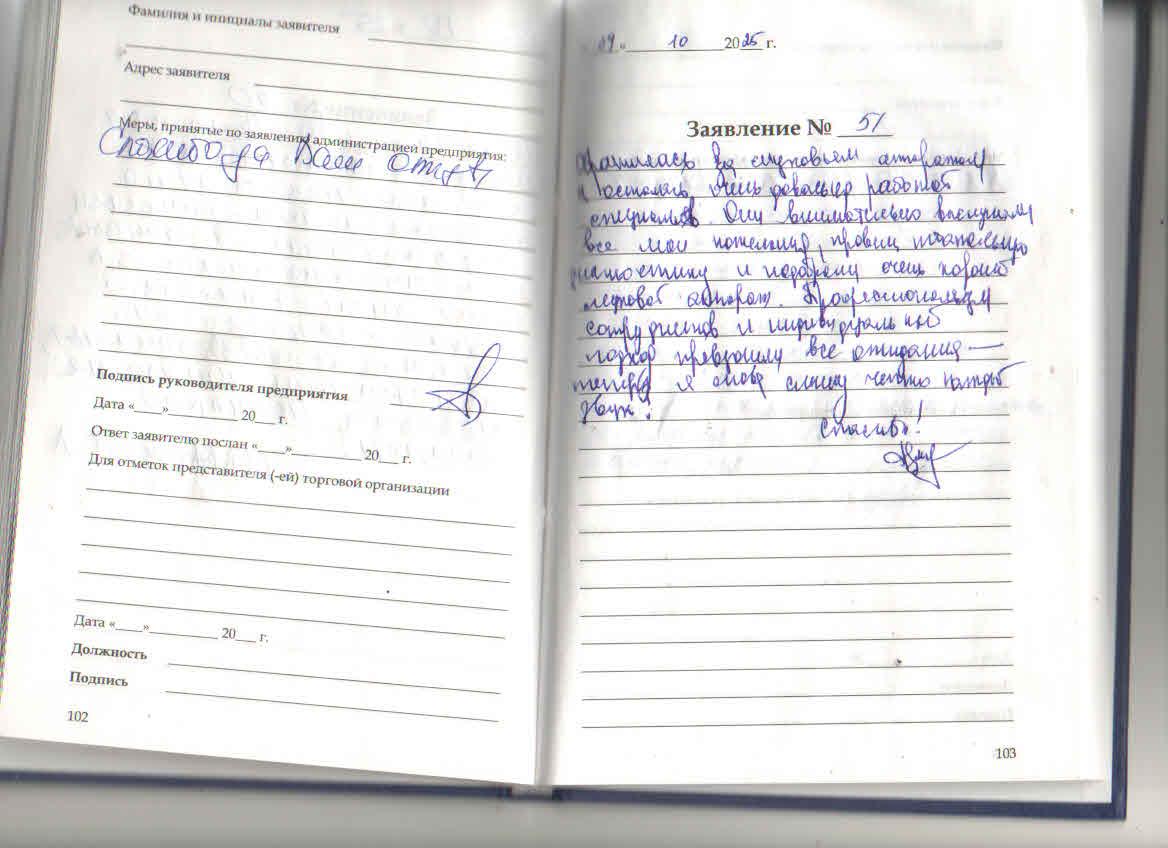 Фамилия и инициалы заявителя
Адрес заявителя
Меры, принятые по заявлению администрацией предприятия:
Спасибо за Ваш отзыв
Подпись руководителя предприятия
Дата «___»__________ 20___ г.
Ответ заявителю послан «____»__________ 20___ г.
Для отметок представителя (-ей) торговой организации
Дата «____»__________ 20___ г.
Должность
Подпись
102
« 10 2025 г.
Заявление № 51
за слуховым аппаратом
и осталась очень довольна работой
Они внимательно выслушали
все мои пожелания, тщательную
диагностику и подобрали очень хороший
слуховой аппарат. Профессионализм
сотрудников и индивидуальный
подход превзошли все ожидания —
теперь я снова слышу четко каждый
звук!
Спасибо!
103